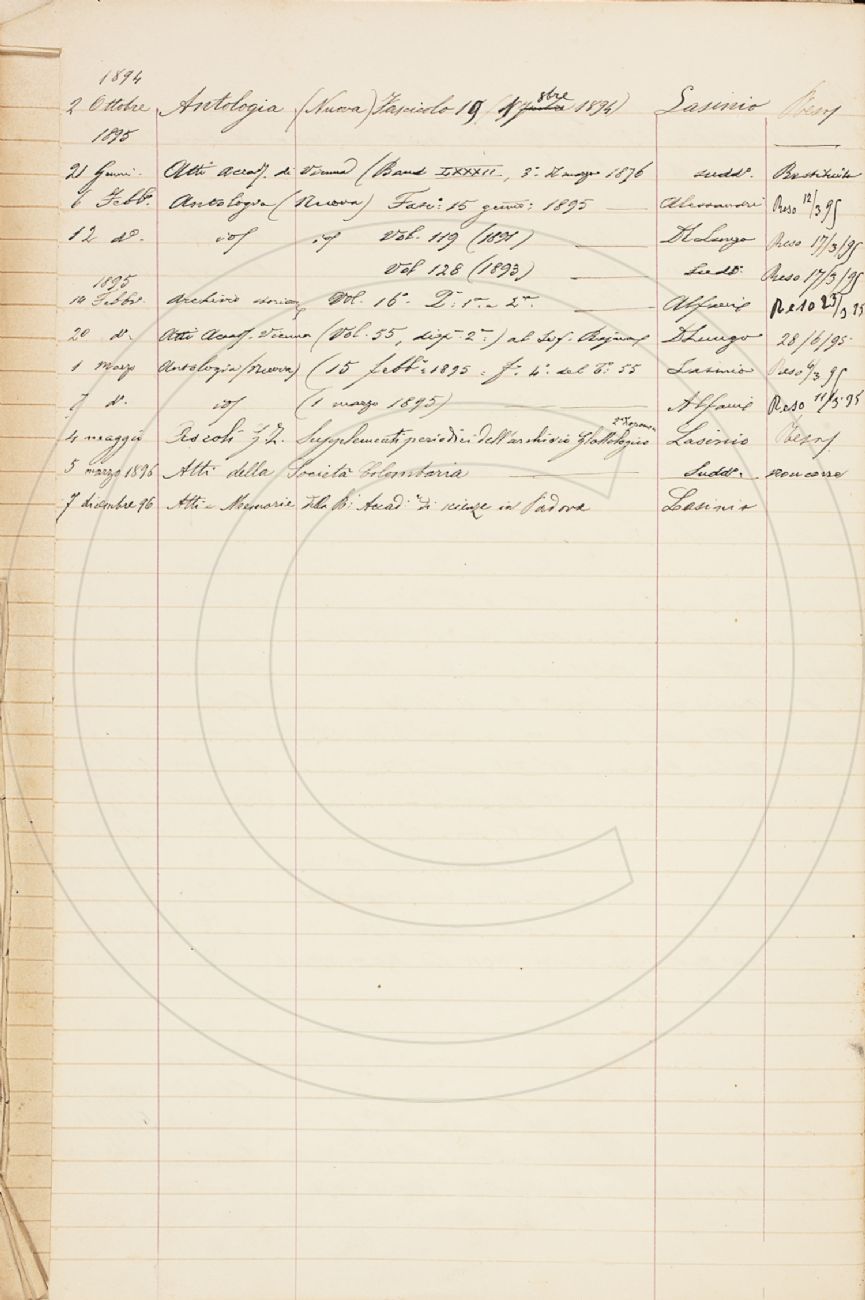 1894
2 Ottobre Antologia (Nuova) Fascicolo 19 (1 8bre 1894) Lasinio Reso
1895
21 Genn. Atti Accad. di Vienna (Band LXXXII, 3° marzo 1876 sudd°. Restituito
6 Febb°. Antologia (Nuova) Fasc: 15 genn: 1895 — Alessandri Reso 12/3 95
12 d°. id id Vol. 119 (1891) — Del Lungo Reso 17/3/95
Vol 128 (1893) — Sudd° Reso 17/3/95
1895
14 Febbr. Archivio storico Vol. 16° D. 1a e 2a. — Alfani Reso 23/3 95
20 d°. Atti Accad. Vienna (Vol. 55, disp. 2a) al Sig. D Lungo 28/6/95
1 marzo Antologia (Nuova) (15 febb° 1895. f. 4°. del T: 55 Lasinio Reso 6/3 95
7 d°. id (1 marzo 1895) — Alfani Reso 11/5 95
4 maggio Ascoli G. I. Supplementi periodici dell'archivio Glottologico Lasinio Reso
5 marzo 1896 Atti della Società Colombaria — Sudd°. non corre
7 dicembre 96 Atti e Memorie della R. Accad. di scienze in Padova Lasinio